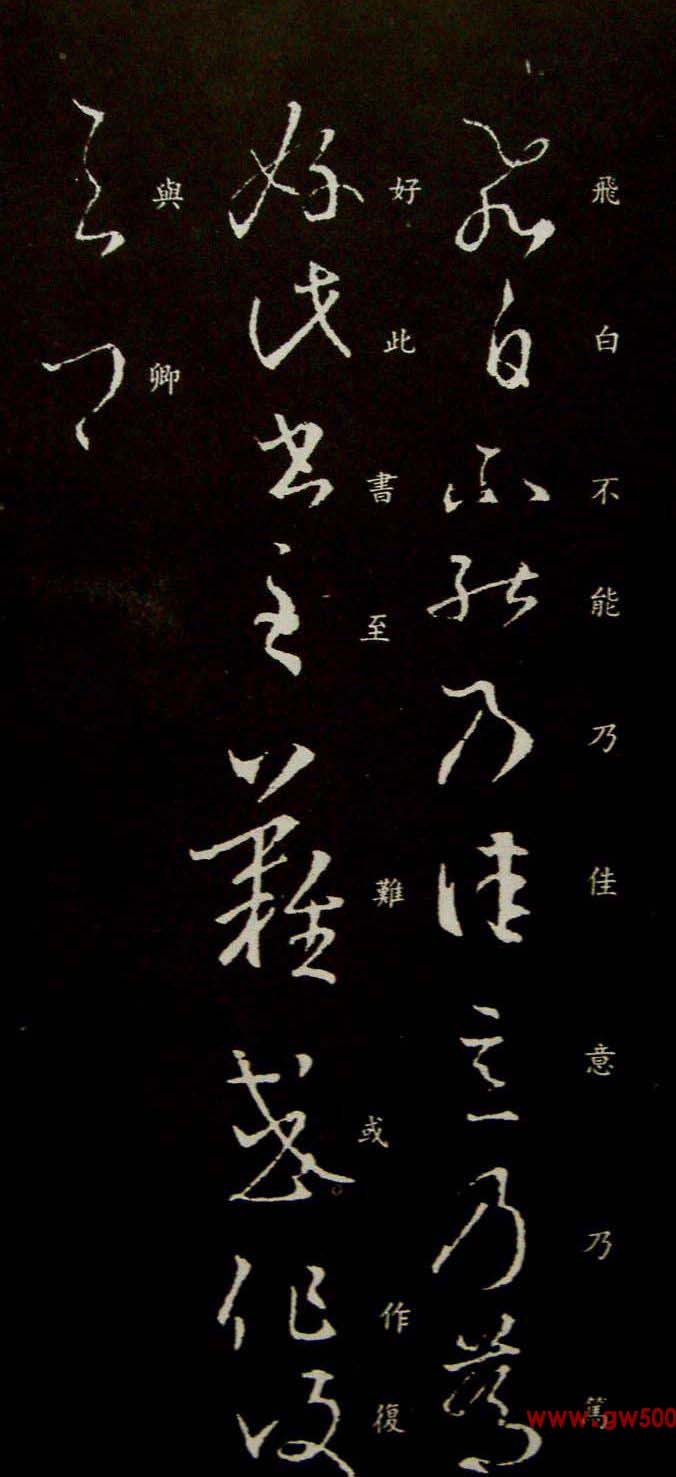 飛白不能乃佳意乃篤
好此書至難或作復
與卿
www.gw500